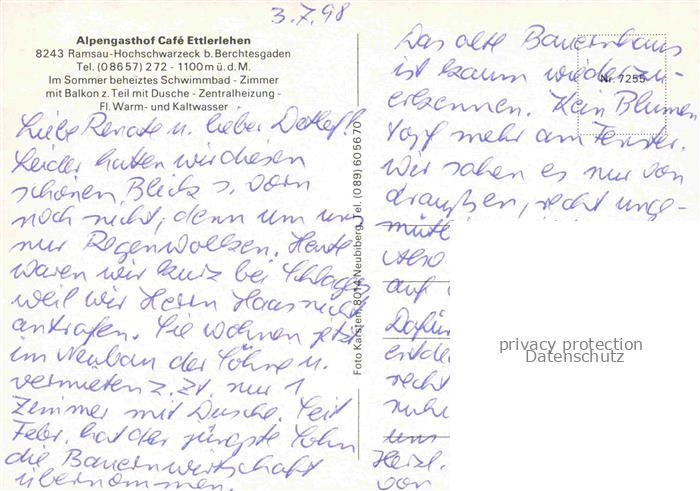 3.7.98
Alpengasthof Café Ettlerlehen
8243 Ramsau-Hochschwarzeck b. Berchtesgaden
Tel. (08657) 272 - 1100 m ü.d.M.
Im Sommer beheiztes Schwimmbad - Zimmer
mit Balkon z. Teil mit Dusche - Zentralheizung -
Fl. Warm- und Kaltwasser
Liebe Renate u. lieber Detlef!
Leider hatten wir diesen
schönen Blick s. vorn
noch nicht, denn um uns
nur Regenwolken. Heute
waren wir kurz bei
weil wir Herrn Haas nicht
antrafen. Sie wohnen jetzt
im Neubau der Söhne u.
vermieten z. Zt. nur 1
Zimmer mit Dusche. Seit
Febr. hat der jüngste Sohn
die Bauernwirtschaft
übernommen.
Foto Karsten, 8014 Neubiberg, Tel. (089) 605670
Nr. 7255
Das alte Bauernhaus
ist kaum wiederzu-
erkennen. Kein Blumen
topf mehr am Fenster.
Wir sahen es nur von
draußen, recht unge-
Also
auf
Dafür
entde
recht
ruhe
uns
Herzl.
von
privacy protection
Datenschutz